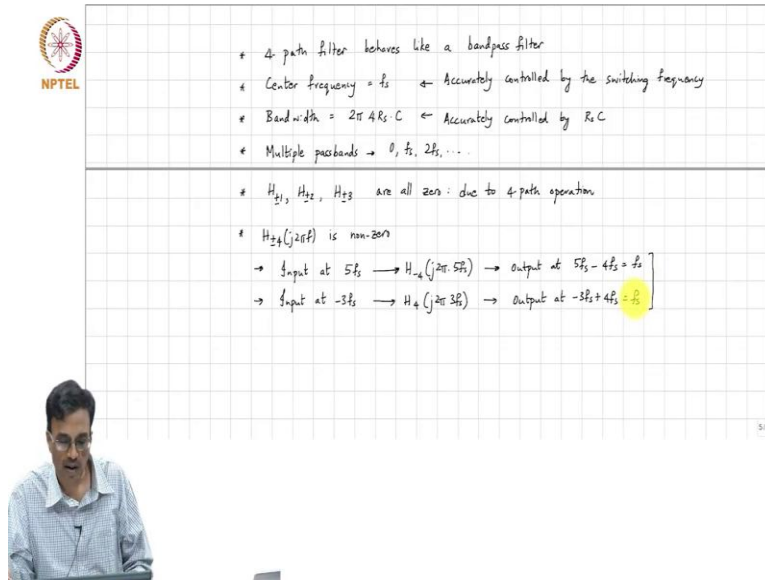 * 4 path filter behaves like a bandpass filter
* Center frequency = fs ← Accurately controlled by the switching frequency
* Bandwidth = 2π 4 Rs · C ← Accurately controlled by RsC
* Multiple passbands → 0, fs, 2fs, ....
* H±1, H±2, H±3 are all zero : due to 4 path operation
* H±4(j2πf) is non-zero
→ Input at 5fs ⟶ H-4(j2π. 5fs) → Output at 5fs - 4fs = fs
→ Input at -3fs ⟶ H4(j2π 3fs) → Output at -3fs + 4fs = fs
NPTEL